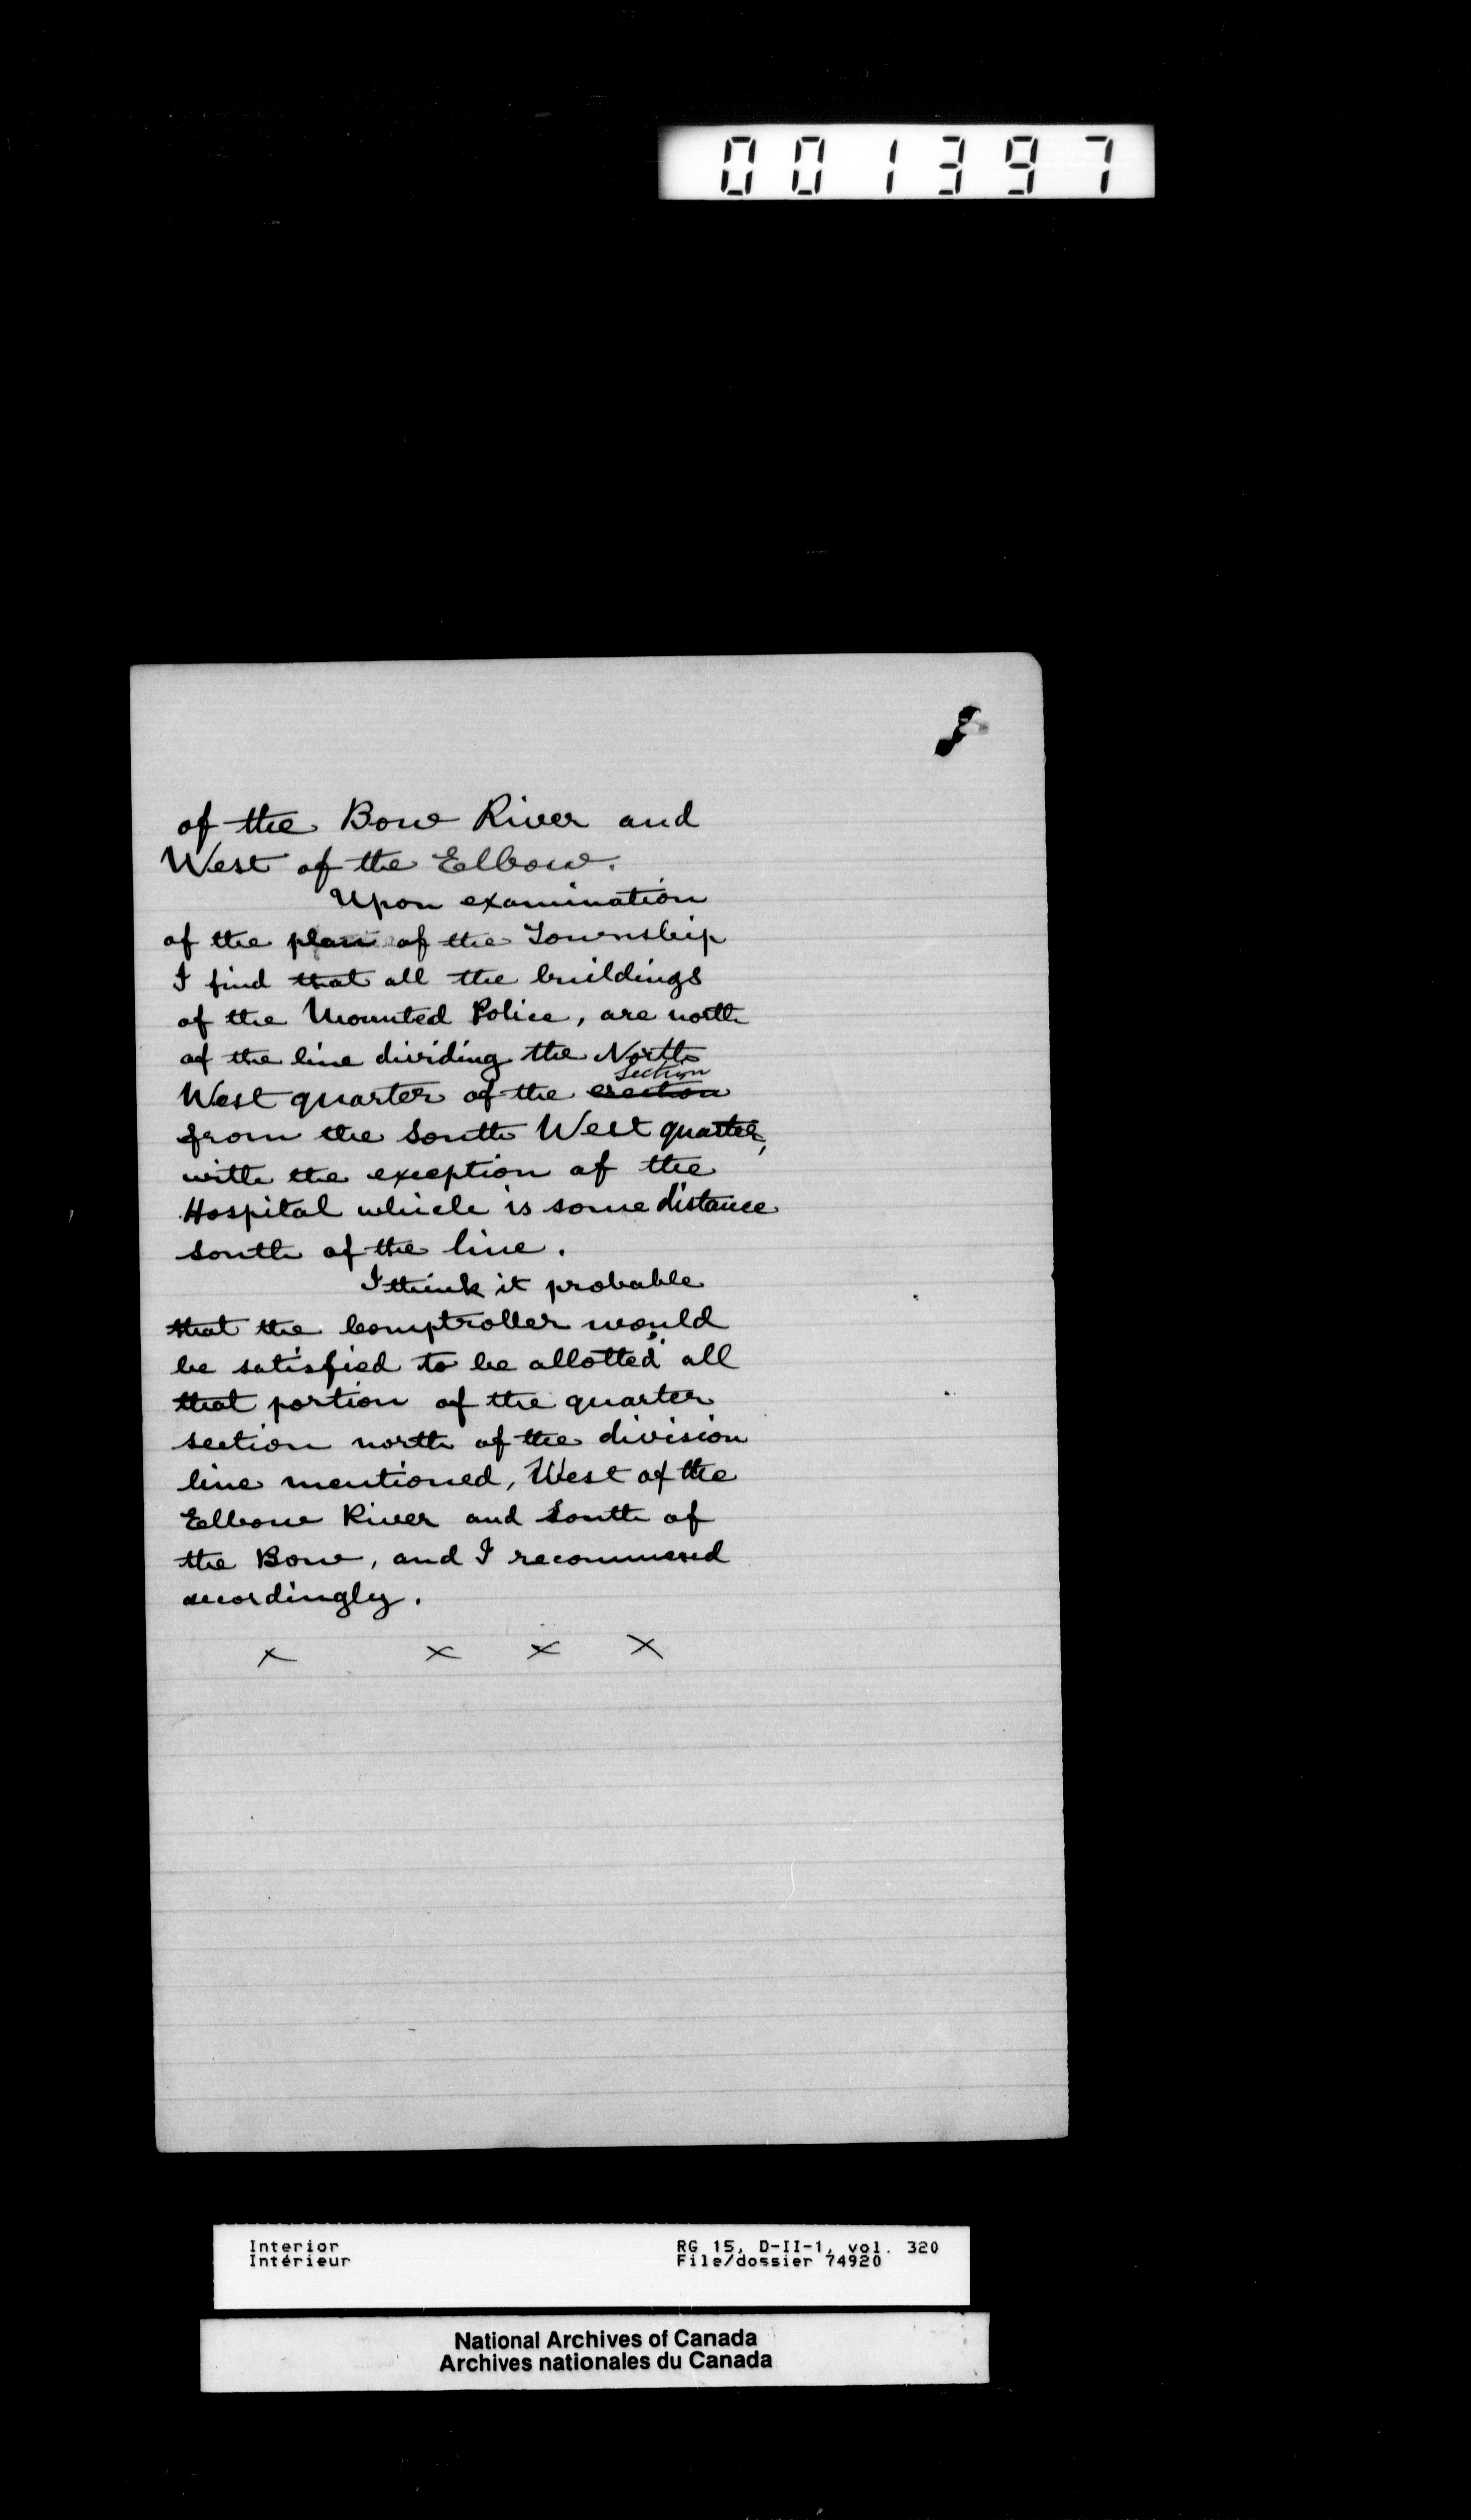 001397
of the Bow River and
West of the Elbow.
Upon examination
of the plan of the Township
I find that all the buildings
of the Mounted Police, are north
of the line dividing the North
Section
West quarter of the erection
from the South West quarter,
with the exception of the
Hospital which is some distance
south of the line.
I think it probable
that the Comptroller would
be satisfied to be allotted all
that portion of the quarter
section north of the division
line mentioned, West of the
Elbow River and South of
the Bow, and I recommend
accordingly.
x x x x
Interior RG 15, D-II-1, vol. 320
Intérieur File/dossier 74920
National Archives of Canada
Archives nationales du Canada